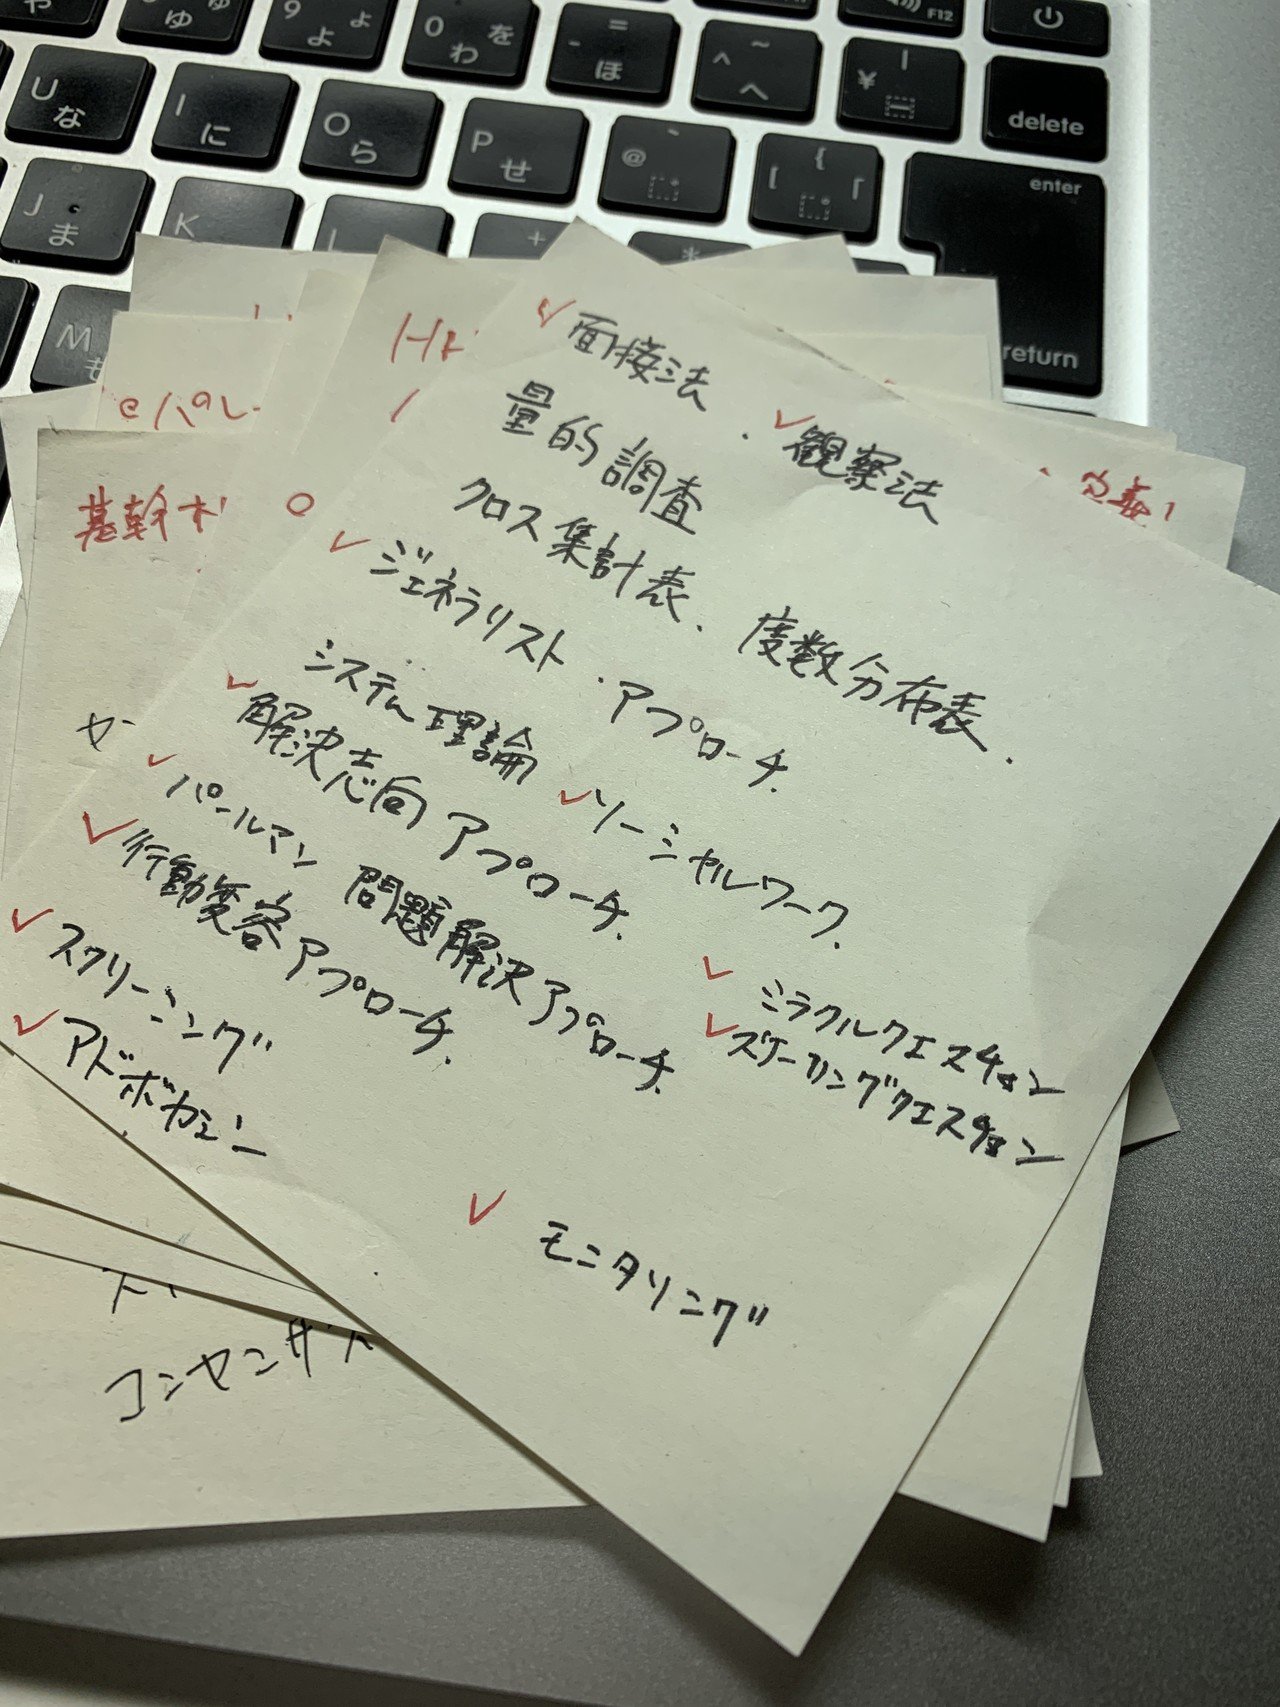 F12
9 よ ょ
0 わ を
- = ほ
^ ~ へ
¥ |
U な
I に
O ら
P せ
@ `
[ { 「
delete
J ま
K
L
+
*
enter
return
M も
面接法 . 観察法
量的調査
クロス集計表. 度数分布表.
ジェネラリスト・アプローチ.
システム理論 ソーシャルワーク.
解決志向アプローチ.
パールマン 問題解決アプローチ.
行動変容アプローチ.
ミラクルクエスチョン
スケーリングクエスチョン
スクリーニング
アドボカシー
モニタリング
基幹
定義
コンセンサス